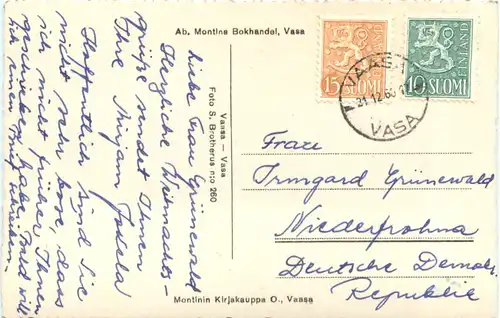 Ab. Montins Bokhandel, Vasa
Liebe Frau Grünewald
Herzliche Weihnachts-
grüße sendet Ihnen
Ihre
Hoffentlich sind Sie
nicht sehr böse, dass
ich nicht früher Ihnen
geschrieben habe. Bald will
ich einen Brief schreiben.
Vaasa Vasa
Foto S. Brotherus n:o 260
15 SUOMI
FINLAND
10 SUOMI
VAASA
31.12.
VASA
Frau
Irmgard Grünewald
Niederfrohna
Deutsche Demokr
Republik
Montinin Kirjakauppa O., Vaasa